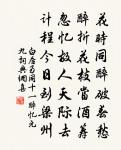 花時同醉破春愁
醉折花枝當酒籌
忽憶故人天際去
計程今日到梁州
白居易同十一醉憶元
九詞典網喜